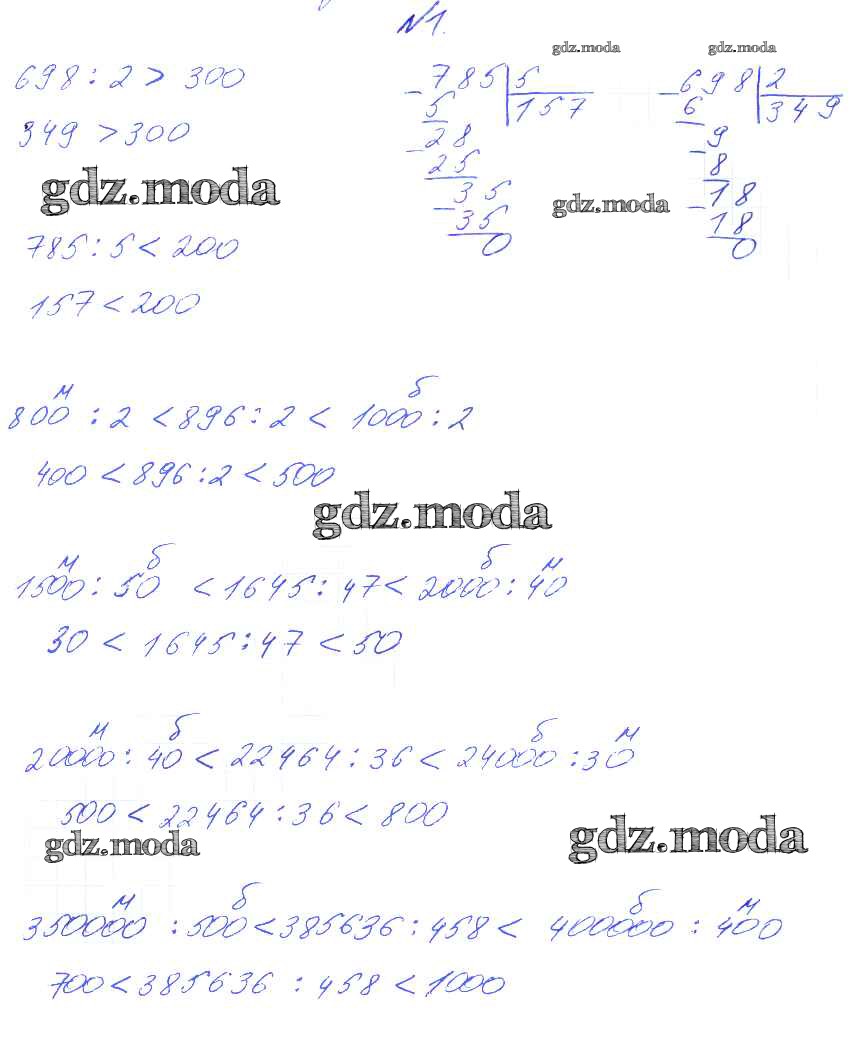 №1.
gdz.moda gdz.moda
698 : 2 > 300
349 > 300
gdz.moda
785 : 5 < 200
157 < 200
- 785 5
5 157
28
- 25
35
- 35
0
gdz.moda
- 698 2
6 349
- 9
8
- 18
18
0
м б
800 : 2 < 896 : 2 < 1000 : 2
400 < 896 : 2 < 500
gdz.moda
м б б м
1500 : 50 < 1645 : 47 < 2000 : 40
30 < 1645 : 47 < 50
м б б м
20000 : 40 < 22464 : 36 < 24000 : 30
500 < 22464 : 36 < 800
gdz.moda gdz.moda
м б б м
350000 : 500 < 385636 : 458 < 400000 : 400
700 < 385636 : 458 < 1000